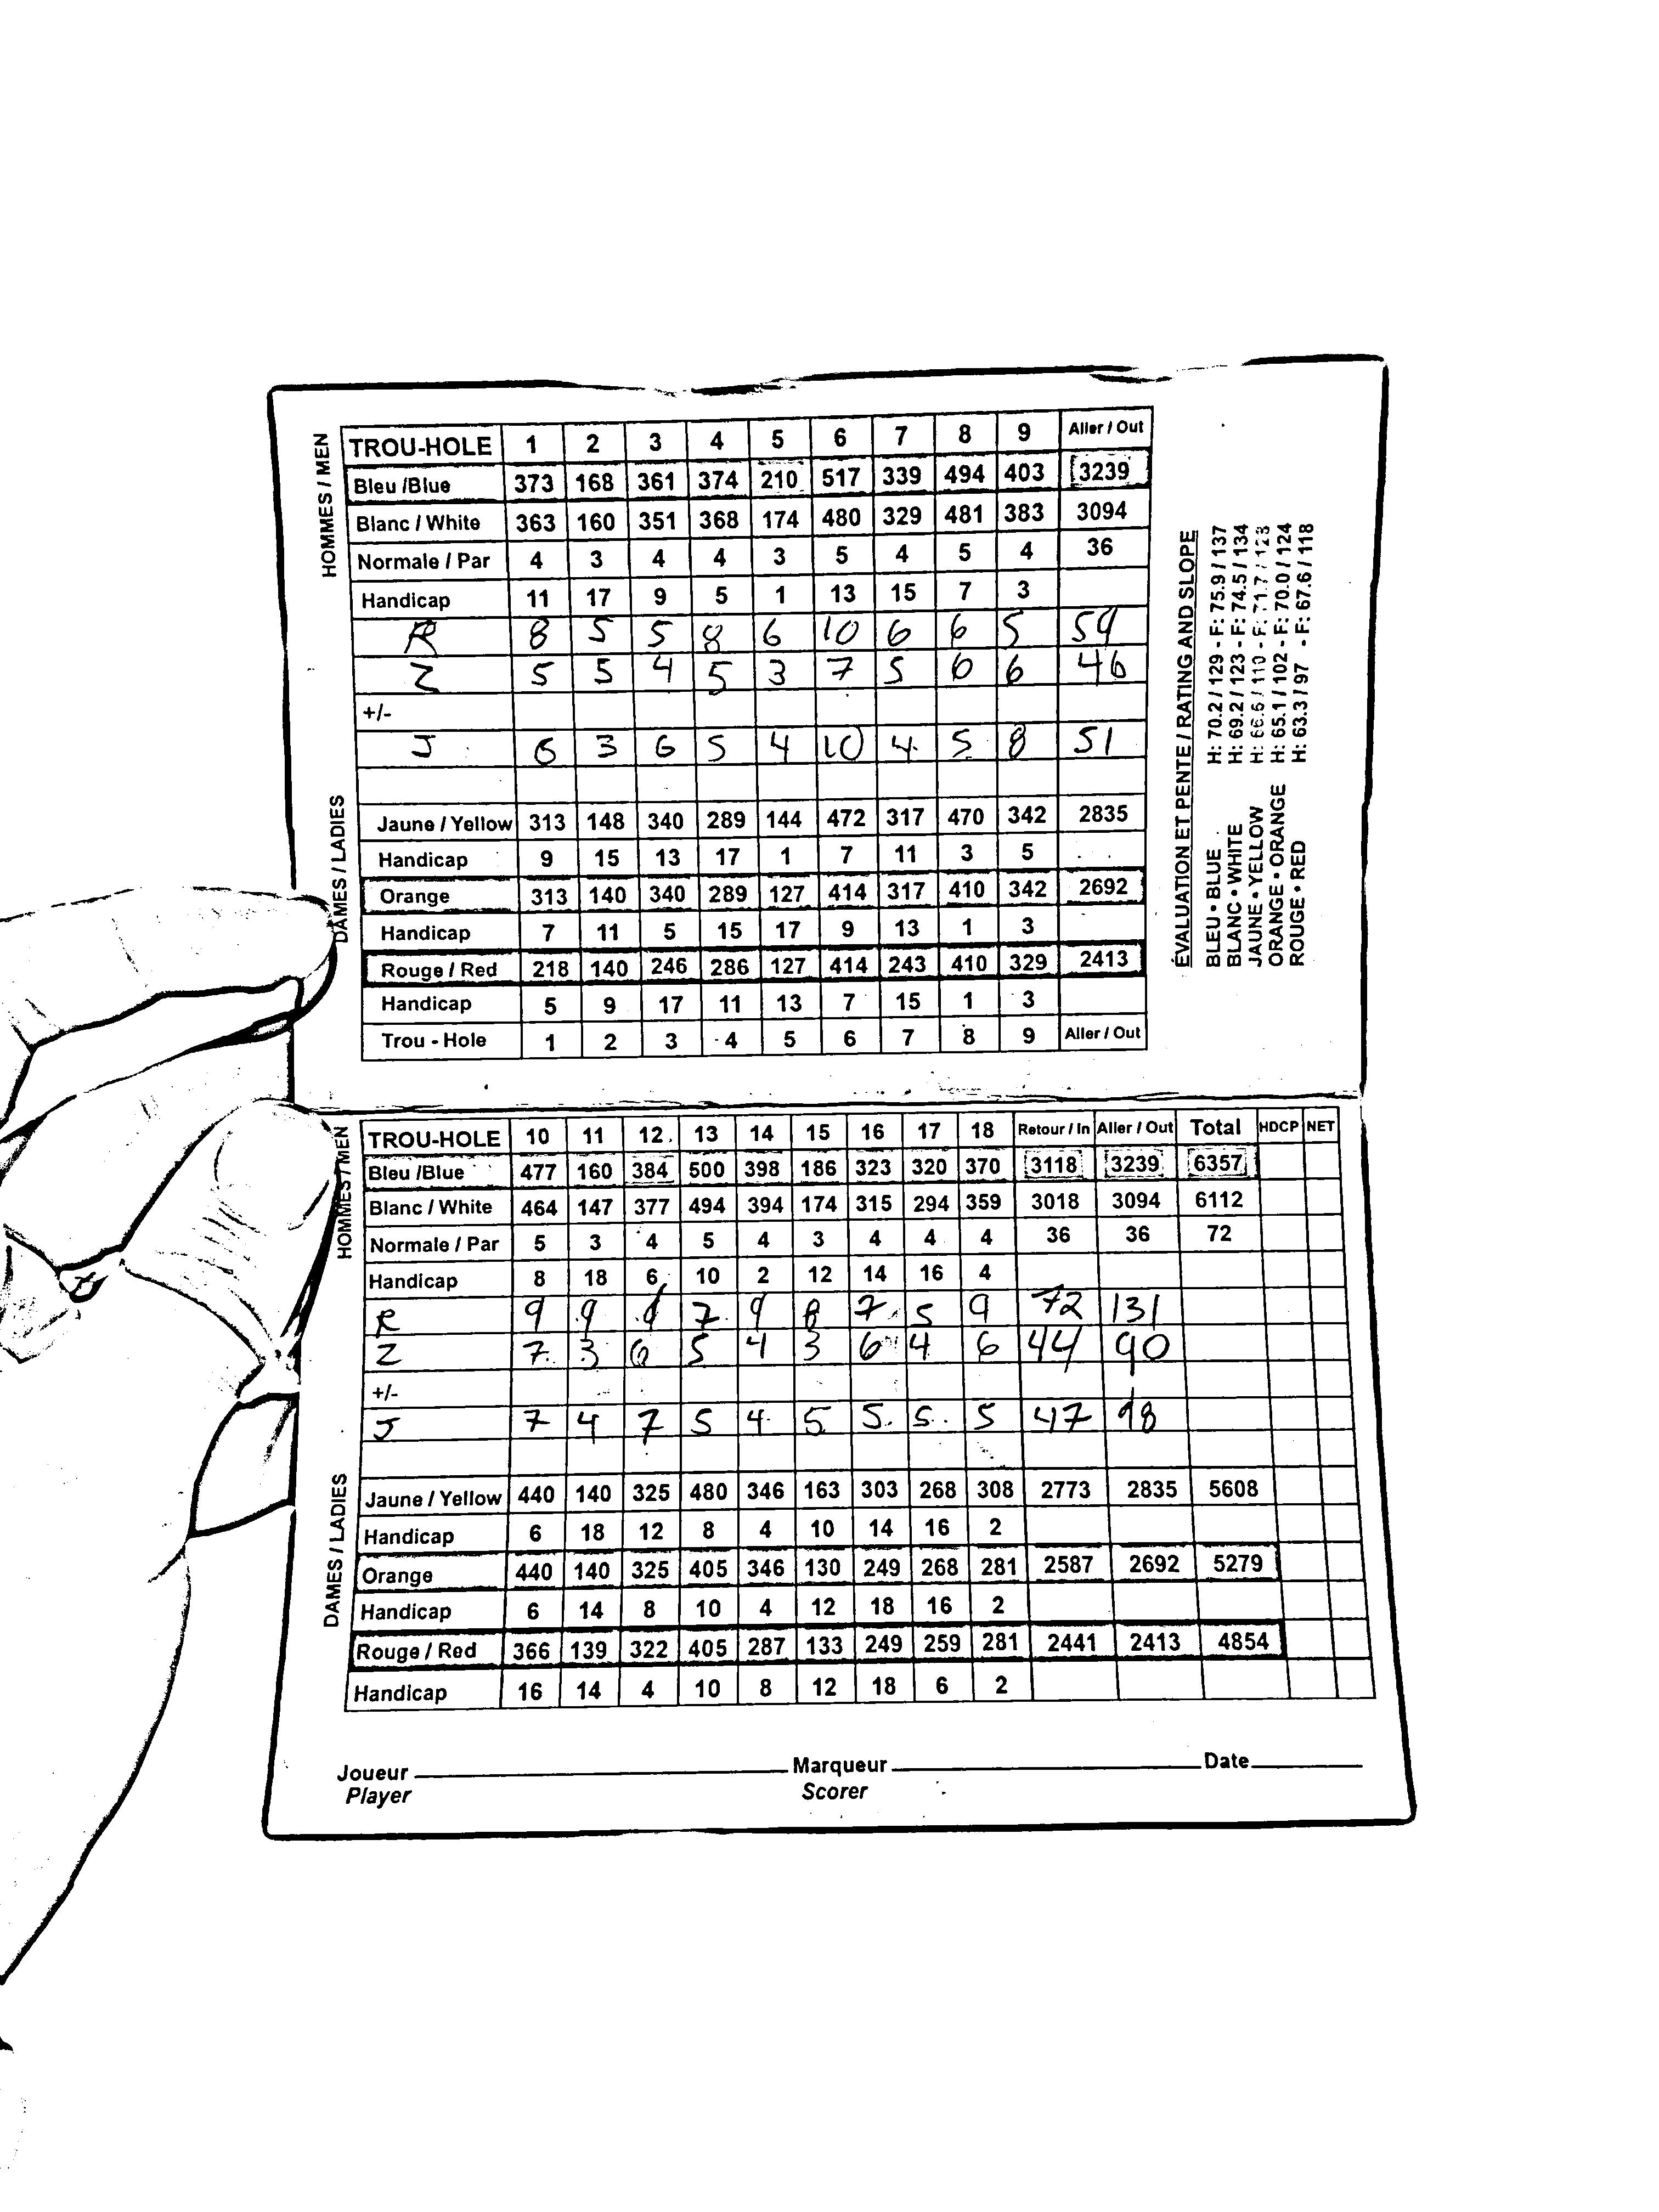 HOMMES / MEN
TROU-HOLE 1 2 3 4 5 6 7 8 9 Aller / Out
Bleu /Blue 373 168 361 374 210 517 339 494 403 3239
Blanc / White 363 160 351 368 174 480 329 481 383 3094
Normale / Par 4 3 4 4 3 5 4 5 4 36
Handicap 11 17 9 5 1 13 15 7 3
R 8 5 5 8 6 10 6 6 5 59
Z 5 5 4 5 3 7 5 6 6 46
+/-
J 6 3 6 5 4 10 4 5 8 51
DAMES / LADIES
Jaune / Yellow 313 148 340 289 144 472 317 470 342 2835
Handicap 9 15 13 17 1 7 11 3 5
Orange 313 140 340 289 127 414 317 410 342 2692
Handicap 7 11 5 15 17 9 13 1 3
Rouge / Red 218 140 246 286 127 414 243 410 329 2413
Handicap 5 9 17 11 13 7 15 1 3
Trou - Hole 1 2 3 4 5 6 7 8 9 Aller / Out
ÉVALUATION ET PENTE / RATING AND SLOPE
BLEU • BLUE H: 70.2 / 129 - F: 75.9 / 137
BLANC • WHITE H: 69.2 / 123 - F: 74.5 / 134
JAUNE • YELLOW H: 66.6 / 110 - F: 71.7 / 128
ORANGE • ORANGE H: 65.1 / 102 - F: 70.0 / 124
ROUGE • RED H: 63.3 / 97 - F: 67.6 / 118
HOMMES / MEN
TROU-HOLE 10 11 12 13 14 15 16 17 18 Retour / In Aller / Out Total HDCP NET
Bleu /Blue 477 160 384 500 398 186 323 320 370 3118 3239 6357
Blanc / White 464 147 377 494 394 174 315 294 359 3018 3094 6112
Normale / Par 5 3 4 5 4 3 4 4 4 36 36 72
Handicap 8 18 6 10 2 12 14 16 4
R 9 9 9 7 9 8 7 5 9 72 131
Z 7 3 6 5 4 3 6 4 6 44 90
+/-
J 7 4 7 5 4 5 5 5 5 47 98
DAMES / LADIES
Jaune / Yellow 440 140 325 480 346 163 303 268 308 2773 2835 5608
Handicap 6 18 12 8 4 10 14 16 2
Orange 440 140 325 405 346 130 249 268 281 2587 2692 5279
Handicap 6 14 8 10 4 12 18 16 2
Rouge / Red 366 139 322 405 287 133 249 259 281 2441 2413 4854
Handicap 16 14 4 10 8 12 18 6 2
Joueur Marqueur Date
Player Scorer